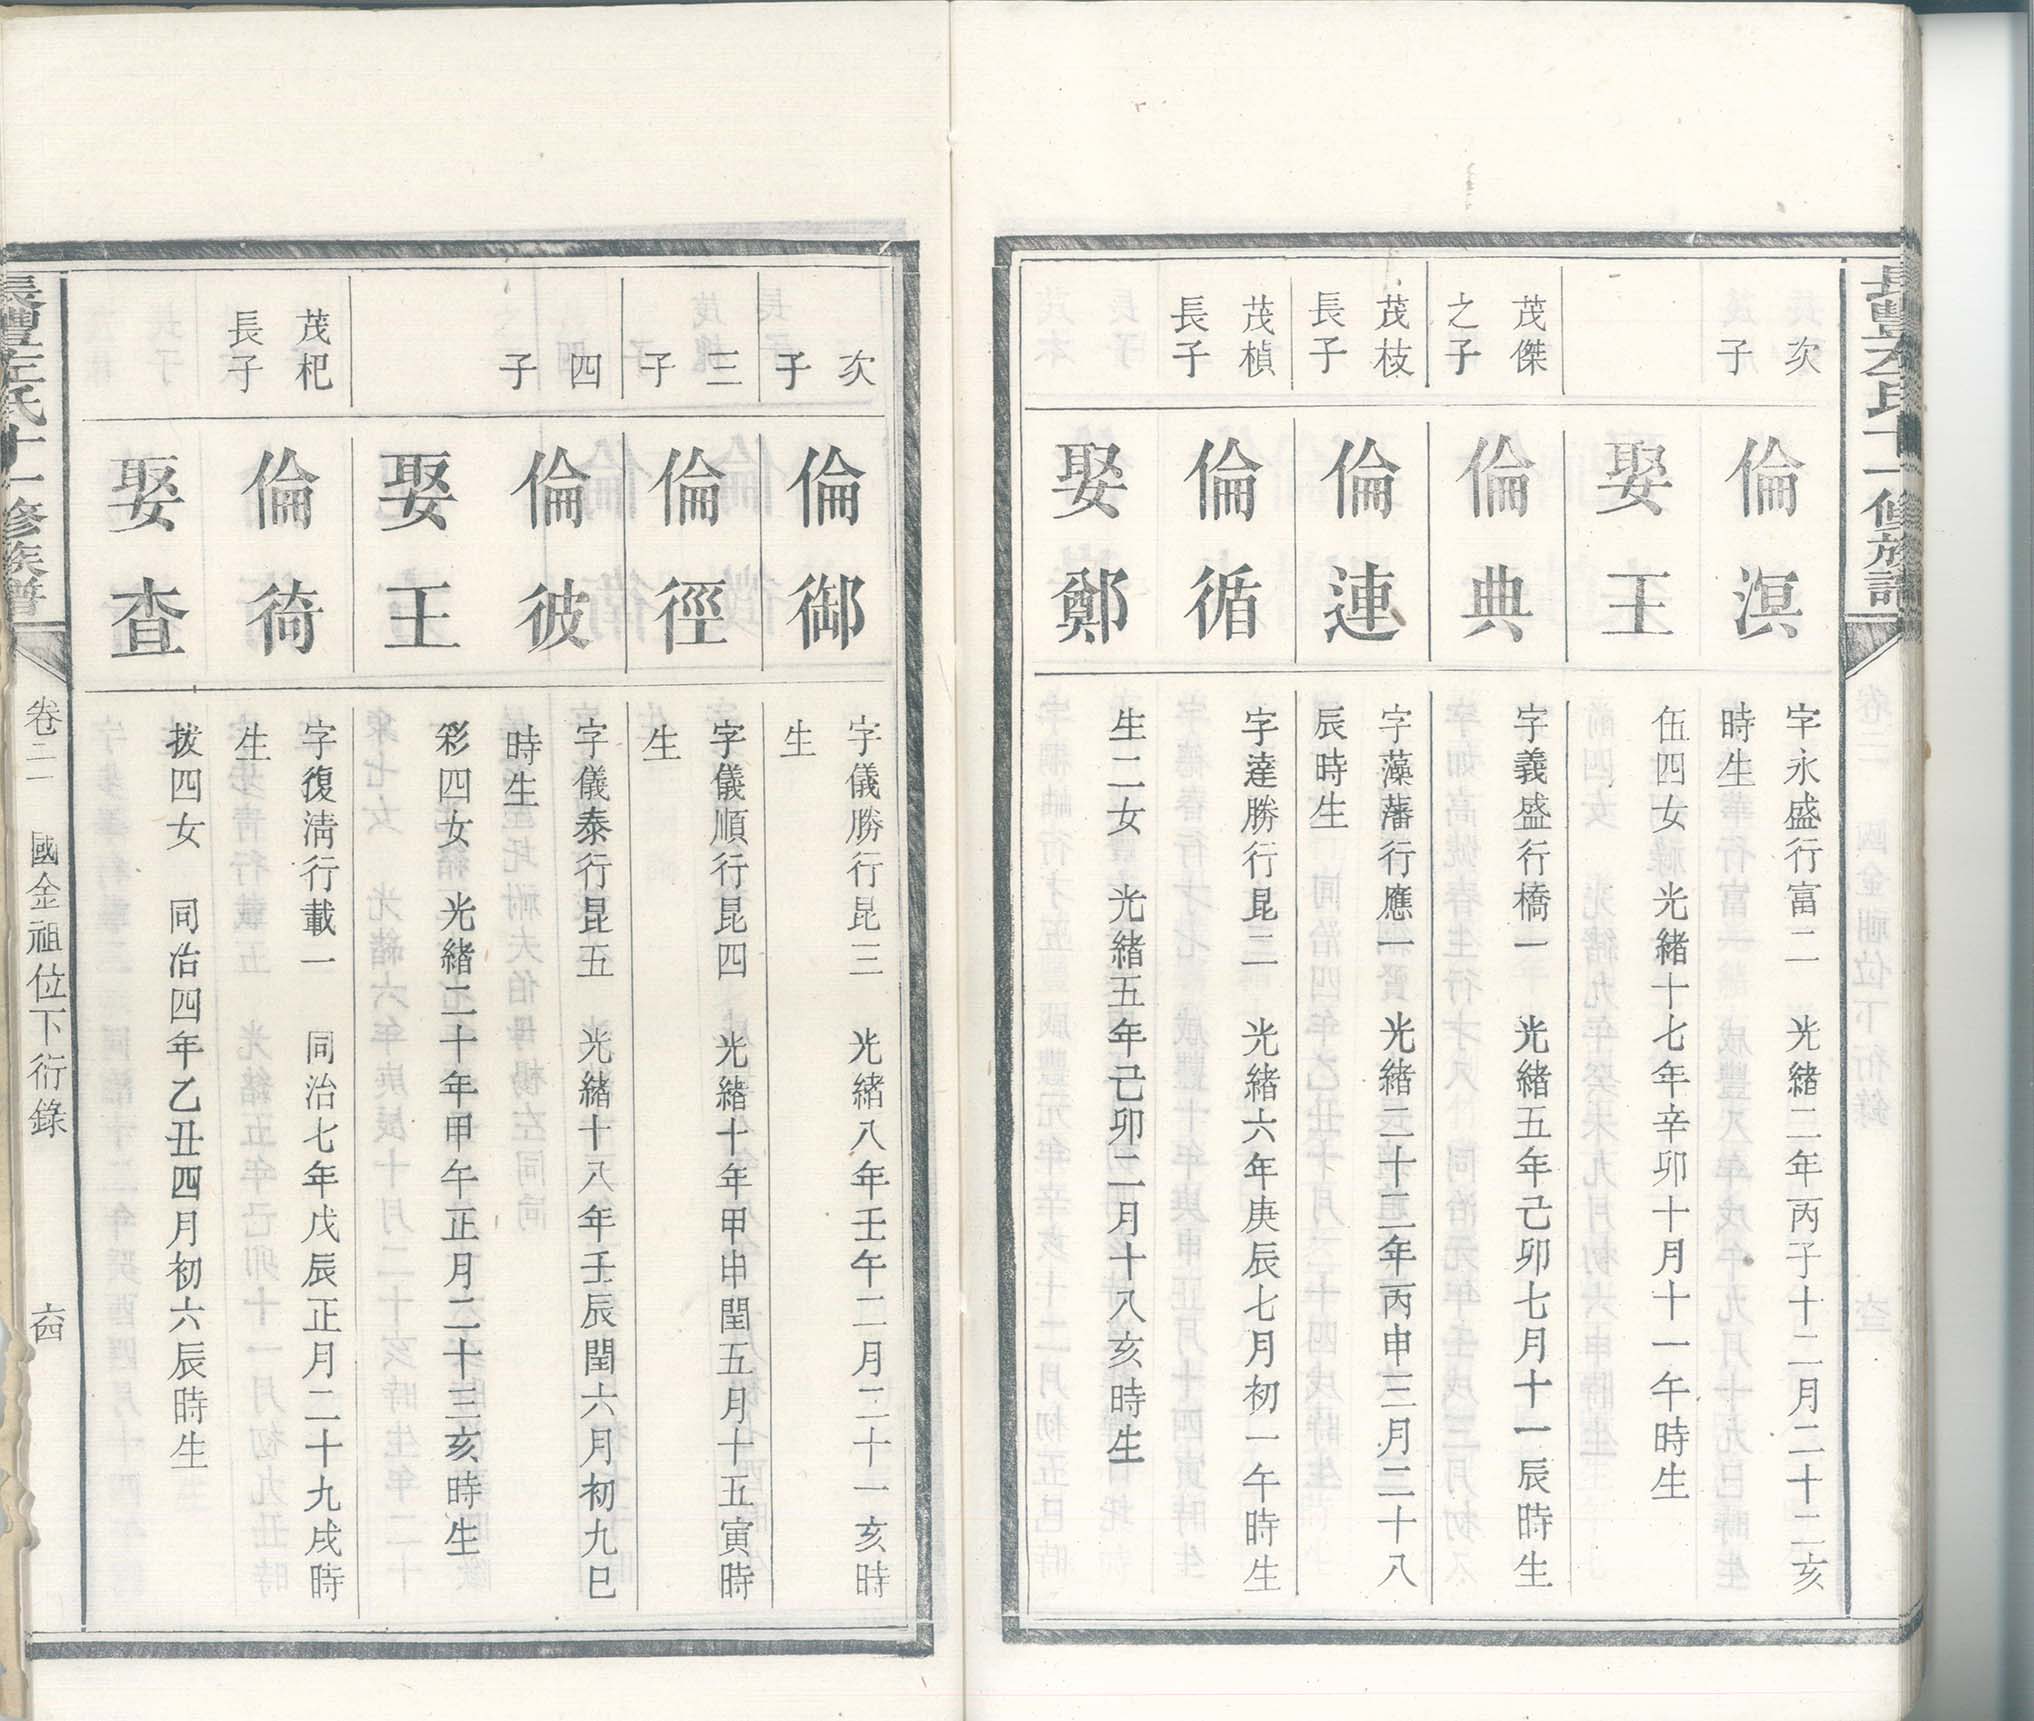 長豐左氏十一修族譜
次子
倫溟
字永盛行富二　光緒二年丙子十二月二十二亥
時生
娶王
伍四女　光緒十七年辛卯十月十一午時生
茂傑之子
倫典
字義盛行橋一　光緒五年己卯七月十一辰時生
茂枝長子
倫連
字藻藩行應一　光緒二十二年丙申三月二十八
辰時生
茂楨長子
倫循
字達勝行昆二　光緒六年庚辰七月初一午時生
娶鄭
生二女　光緒五年己卯二月十八亥時生
次子
倫御
字儀勝行昆三　光緒八年壬午二月二十一亥時
生
三子
倫徑
字儀順行昆四　光緒十年甲申閏五月十五寅時
生
四子
倫彼
字儀泰行昆五　光緒十八年壬辰閏六月初九巳
時生
娶王
彩四女　光緒二十年甲午正月二十三亥時生
茂杞長子
倫徛
字復淸行載一　同治七年戊辰正月二十九戌時
生
娶查
拔四女　同治四年乙丑四月初六辰時生
長豐左氏十一修族譜
卷二　國金祖位下衍錄　六四